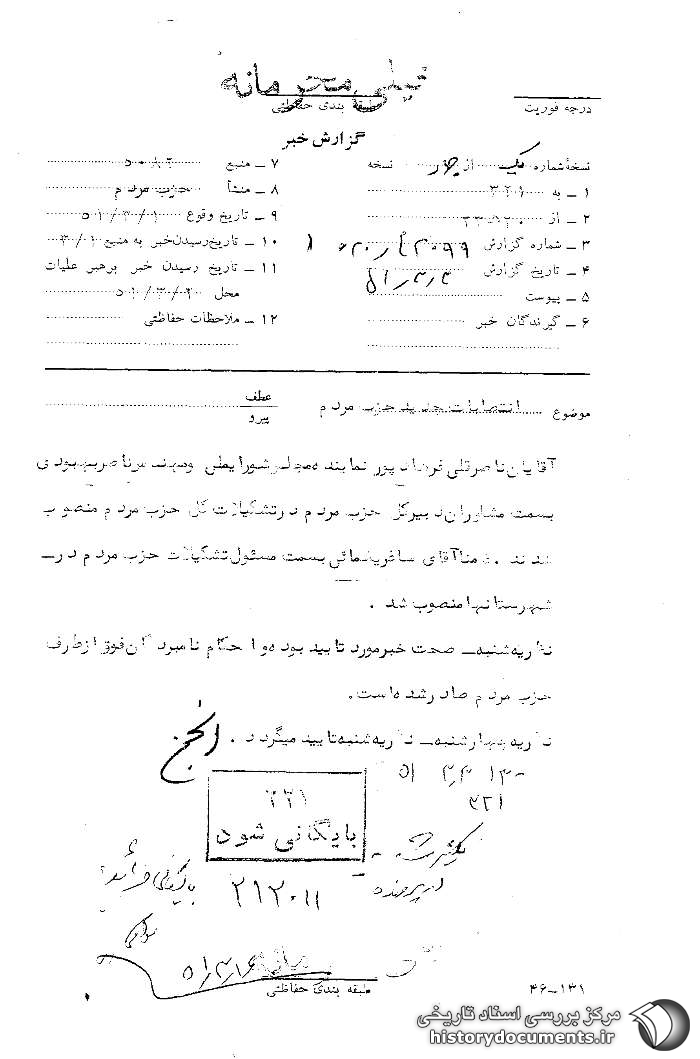 خیلی محرمانه
طبقه بندی حفاظتی
درجه فوریت
گزارش خبر
نسخهٔ شماره یک از چهار نسخه
۱ ـ به ۳۲۱
۲ ـ از
۳ ـ شماره گزارش
۴ ـ تاریخ گزارش
۵ ـ پیوست
۶ ـ گیرندگان خبر
۷ ـ منبع
۸ ـ منشأ حزب مردم
۹ ـ تاریخ وقوع ۵۱/۳/۱
۱۰ ـ تاریخ رسیدن خبر به منبع ۳۰/۱
۱۱ ـ تاریخ رسیدن خبر برهبر عملیات
محل ۵۱/۳/۲۰
۱۲ ـ ملاحظات حفاظتی
موضوع انتصابات جدید حزب مردم
عطف
پیرو
آقایان ناصرقلی فرهادپور نماینده مجلس شورایملی ومهندس ناصربهبودی
بسمت مشاوران دبیرکل حزب مردم درتشکیلات کل حزب مردم منصوب
شدند . ضمنا آقای بسمت مسئول تشکیلات حزب مردم درـ
شهرستانها منصوب شد .
نظریه شنبه ـ صحت خبر مورد تایید بوده و احکام نامبردگان فوق ازطرف
حزب مردم صادرشده است.
نظریه چهارشنبه ـ نظریه شنبه تایید میگردد .
۳۲۱
۳۲۱
بایگانی شود
در پرونده
۲۱۲۰۱۱
بایگانی فرمائید
۵۱/۳/۱۶
طبقه بندی حفاظتی
۴۶-۱۳۱
مرکز بررسی اسناد تاریخی
historydocuments.ir